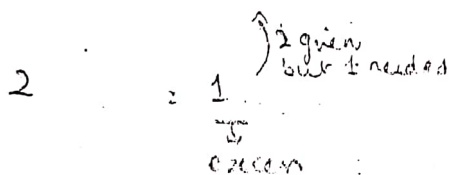 2 given
but 1 needed
2 : 1
excess